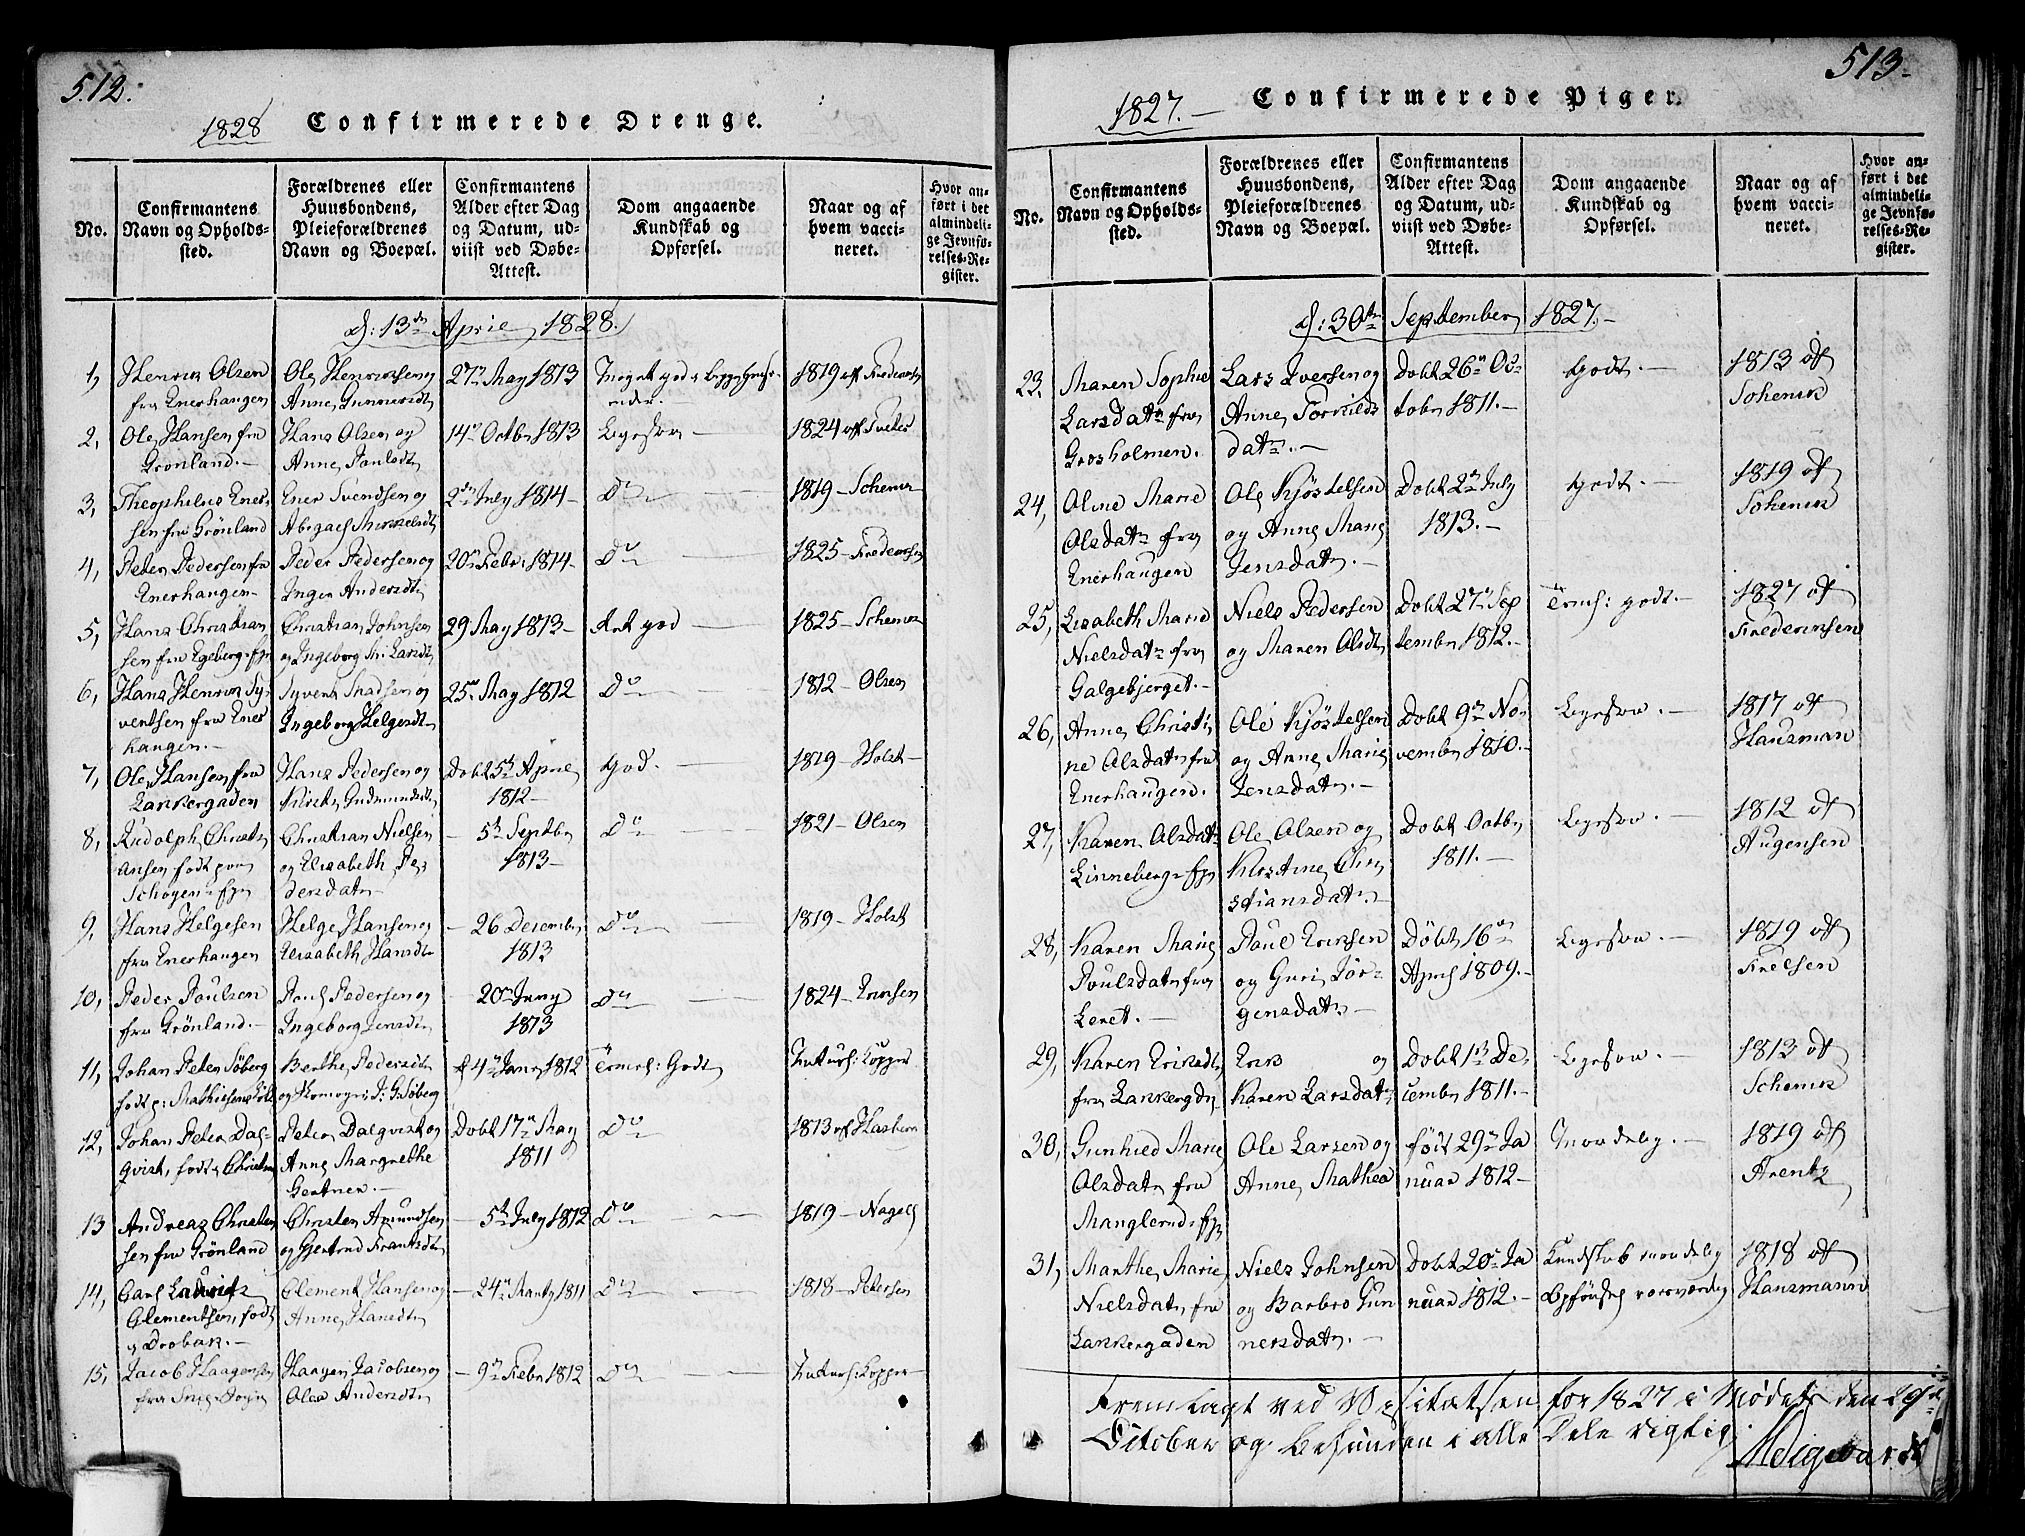 512.
1828 Confirmerede Drenge.
No.
Confirmantens
Navn og Opholds-
sted.
Forældrenes eller
Huusbondens,
Pleieforældrenes
Navn og Boepæl.
Confirmantens
Alder efter Dag
og Datum, ud-
viist ved Døbe-
Attest.
Dom angaaende
Kundskab og
Opførsel.
Naar og af
hvem vacci-
neret.
Hvor an-
ført i det
almindeli-
ge Jevnfø-
relses-Re-
gister.
d: 13de April 1828.
1, Henrik Olsen
fra Enerhaugen
Ole Henriksen og
Anne Gunnersdt
27 May 1813
1819 af Frederiksen
2, Ole Hansen fra
Grønland.-
Hans Olsen og
Anne Paulsdt
14 Octbr 1813
Ligesaa
1824 af
3, Theophilus Ener-
sen fra Grønland
Ener Svendsen og
Abigael Mikkelsdt
2 July 1814
Do
1819 - Schenck
4, Peder Pedersen fra
Enerhaugen
Peder Pedersen og
Inger Andersdt
20 Febr: 1814
Do
1825 - Frederiksen
5, Hans Christian
sen fra Egeberg
Christian Johnsen
og Ingeborg Larsdt
29 May 1813
god
1825 - Schenck
6, Hans Henrik Sy-
vertsen fra Ener
haugen.-
Syvert Madsen og
Ingeborg Helgesdt
25 May 1812
Do
1812 - Olsen
7, Ole Hansen fra
Lakkergaden
Hans Pedersen og
Gudmundsdt
Døbt 25 April
1812
god.
1819 - Holst
8, Rudolph Christi
ansen født paa
Christian Nielsen
og Elisabeth Pe-
dersdatr
5 Septbr
1813
Do
1821 - Olsen
9, Hans Helgesen
fra Enerhaugen
Helge Hansen og
Elisabeth Hansdt
26 December
1813
Do
1819 - Holst
10, Peder Poulsen
fra Grønland.-
Poul Pedersen og
Ingeborg Jensdt
20 Juny
1813
Do
1824 - Ericsen
11, Johan Peter Söberg
født p:
Berthe Pedersdt
og
4 Janr 1812
Temel: Godt
Naturl: Kopper
12, Johan Peter Dal-
qvist, født i
Peter Dalqvist og
Anne Margrethe
Gertner.-
Døbt 17 May
1811
Do
1813 af
13 Andreas Christen
sen fra Grønland
Christen Amundsen
og Gjertrud Frantzdt
5 July 1812
Do
1819 - Nagel
14, Carl Ludvig
Clementsen, født
i Drøbak.-
Clement Hansen og
Anne Hansdt
24 Marts 1811
Do
1818 - Petersen
15, Jacob Haagensen
fra
Haagen Jacobsen og
Olea Andersdt
9 Febr 1812
Do
Naturl: Kopper
513-
1827.- Confirmerede Piger.
No.
Confirmantens
Navn og Opholds-
sted.
Forældrenes eller
Huusbondens,
Pleieforældrenes
Navn og Boepæl.
Confirmantens
Alder efter Dag
og Datum, ud-
viist ved Døbe-
Attest.
Dom angaaende
Kundskab og
Opførsel.
Naar og af
hvem vacci-
neret.
Hvor an-
ført i det
almindeli-
ge Jevnfø-
relses-Re-
gister.
d: 30te September 1827.-
23. Maren Sophie
Larsdatr fra
Grosholmen.
Lars Iversen og
Anne Torkilds
datr.-
Døbt 26 Oc-
tobr 1811.-
Godt.-
1813 af
Schenck
24, Oline Marie
Olsdatr fra
Enerhaugen
Ole Kjöstelsen
og Anne Marie
Jensdatr.-
Døbt 2 July
1813.-
Godt.-
1819 af
Schenck
25, Lisabeth Marie
Nielsdatr fra
Galgebjerget.-
Niels Pedersen
og Maren Olsdt
Døbt 27 Sep
tembr 1812.-
Temel: godt.-
1827 af
Frederiksen
26, Anne Christi
ne Olsdatr fra
Enerhaugen.
Ole Kjöstelsen
og Anne Marie
Jensdatr.-
Døbt 9 No-
vembr 1810.-
Ligesaa.-
1817 af
Hansman
27, Karen Olsdatr
Linneberg
Ole Olsen og
Kirstine Chri
stiansdatr.-
Døbt Octbr
1811.-
Ligesaa.-
1812 af
Augensen
28, Karen Marie
Poulsdatr fra
Leret.-
Poul Ericsen
og Guri Jör-
gensdatr-
Døbt 16
April 1809.-
Ligesaa.-
1819 af
Frelsen
29, Karen Eriksdt
fra Lakkergdn
Erik og
Karen Larsdatr
Døbt 13 De-
cembr 1811.-
Ligesaa.-
1813 af
Schenck
30, Gunhild Marie
Olsdatr fra
Manglerud
Ole Larsen og
Anne Mathea
født 29 Ja
nuar 1812-
Maadelig.-
1819 af
Arentz
31, Marthe Marie
Nielsdatr fra
Lakkergaden
Niels Johnsen
og Barbro Gun
nersdatr.-
Døbt 20 Ja
nuar 1812.-
Kundskab maadelig
Opførsel roesværdig
1818 af
Hansmann
Fremlagt ved Visitatsen for 1827 i Mødet den 29de
October og befunden i alle Dele rigtig.